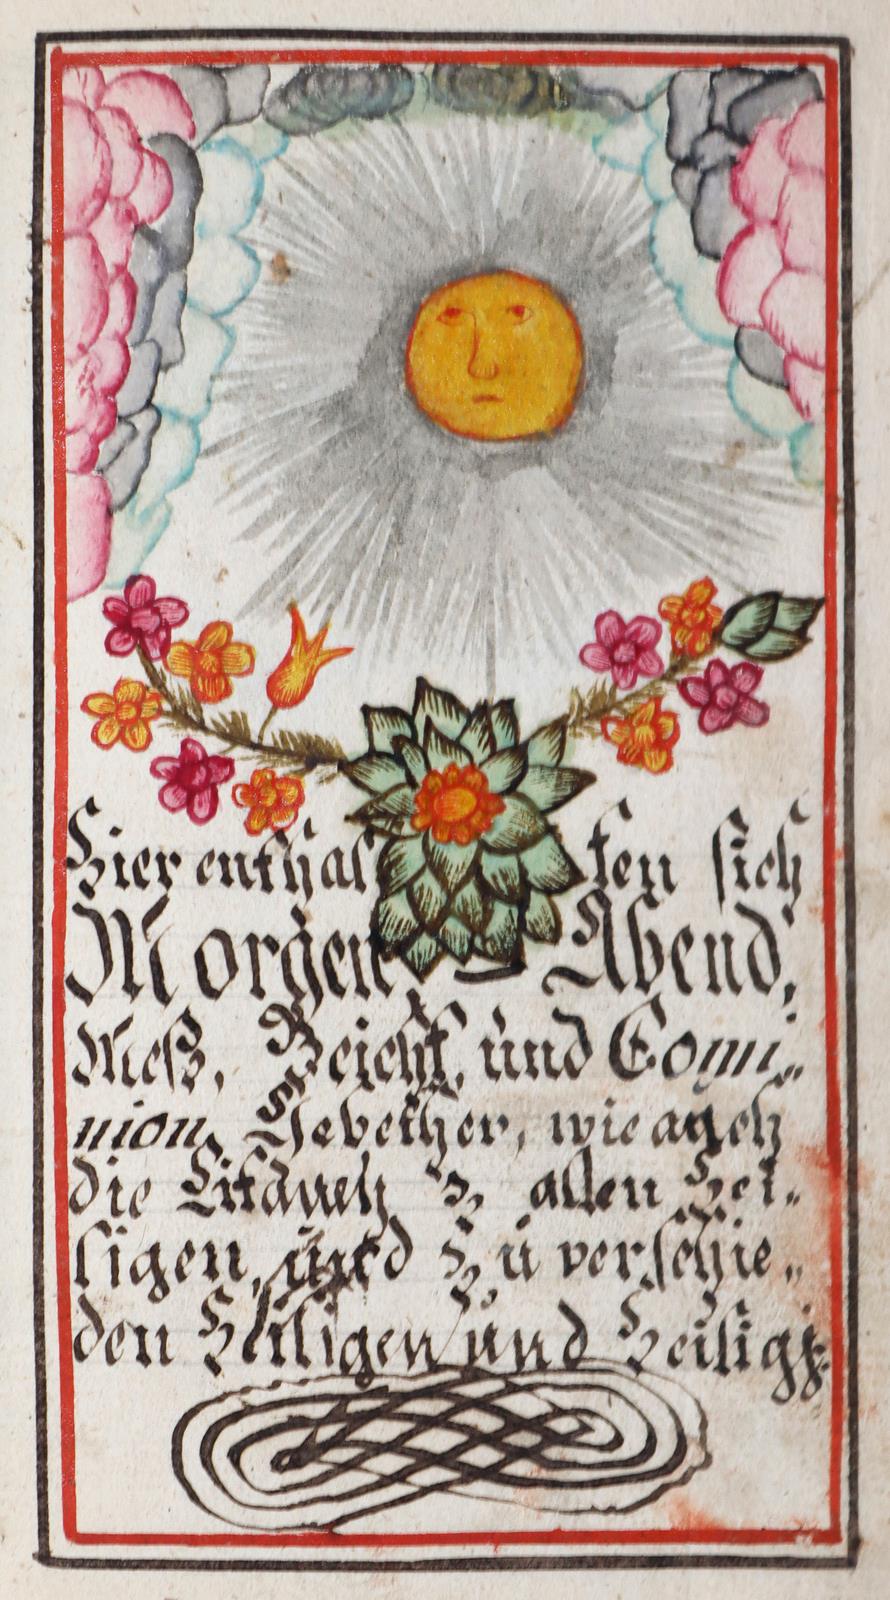 Hier enthal ten sich
Morgen - Abend,
Meß, Beicht, und Com̄i„
nion, Gebether, wie auch
die Litaneÿ z allen Hei„
ligen, und Zu verschie„
den Heiligen und Heiligē.